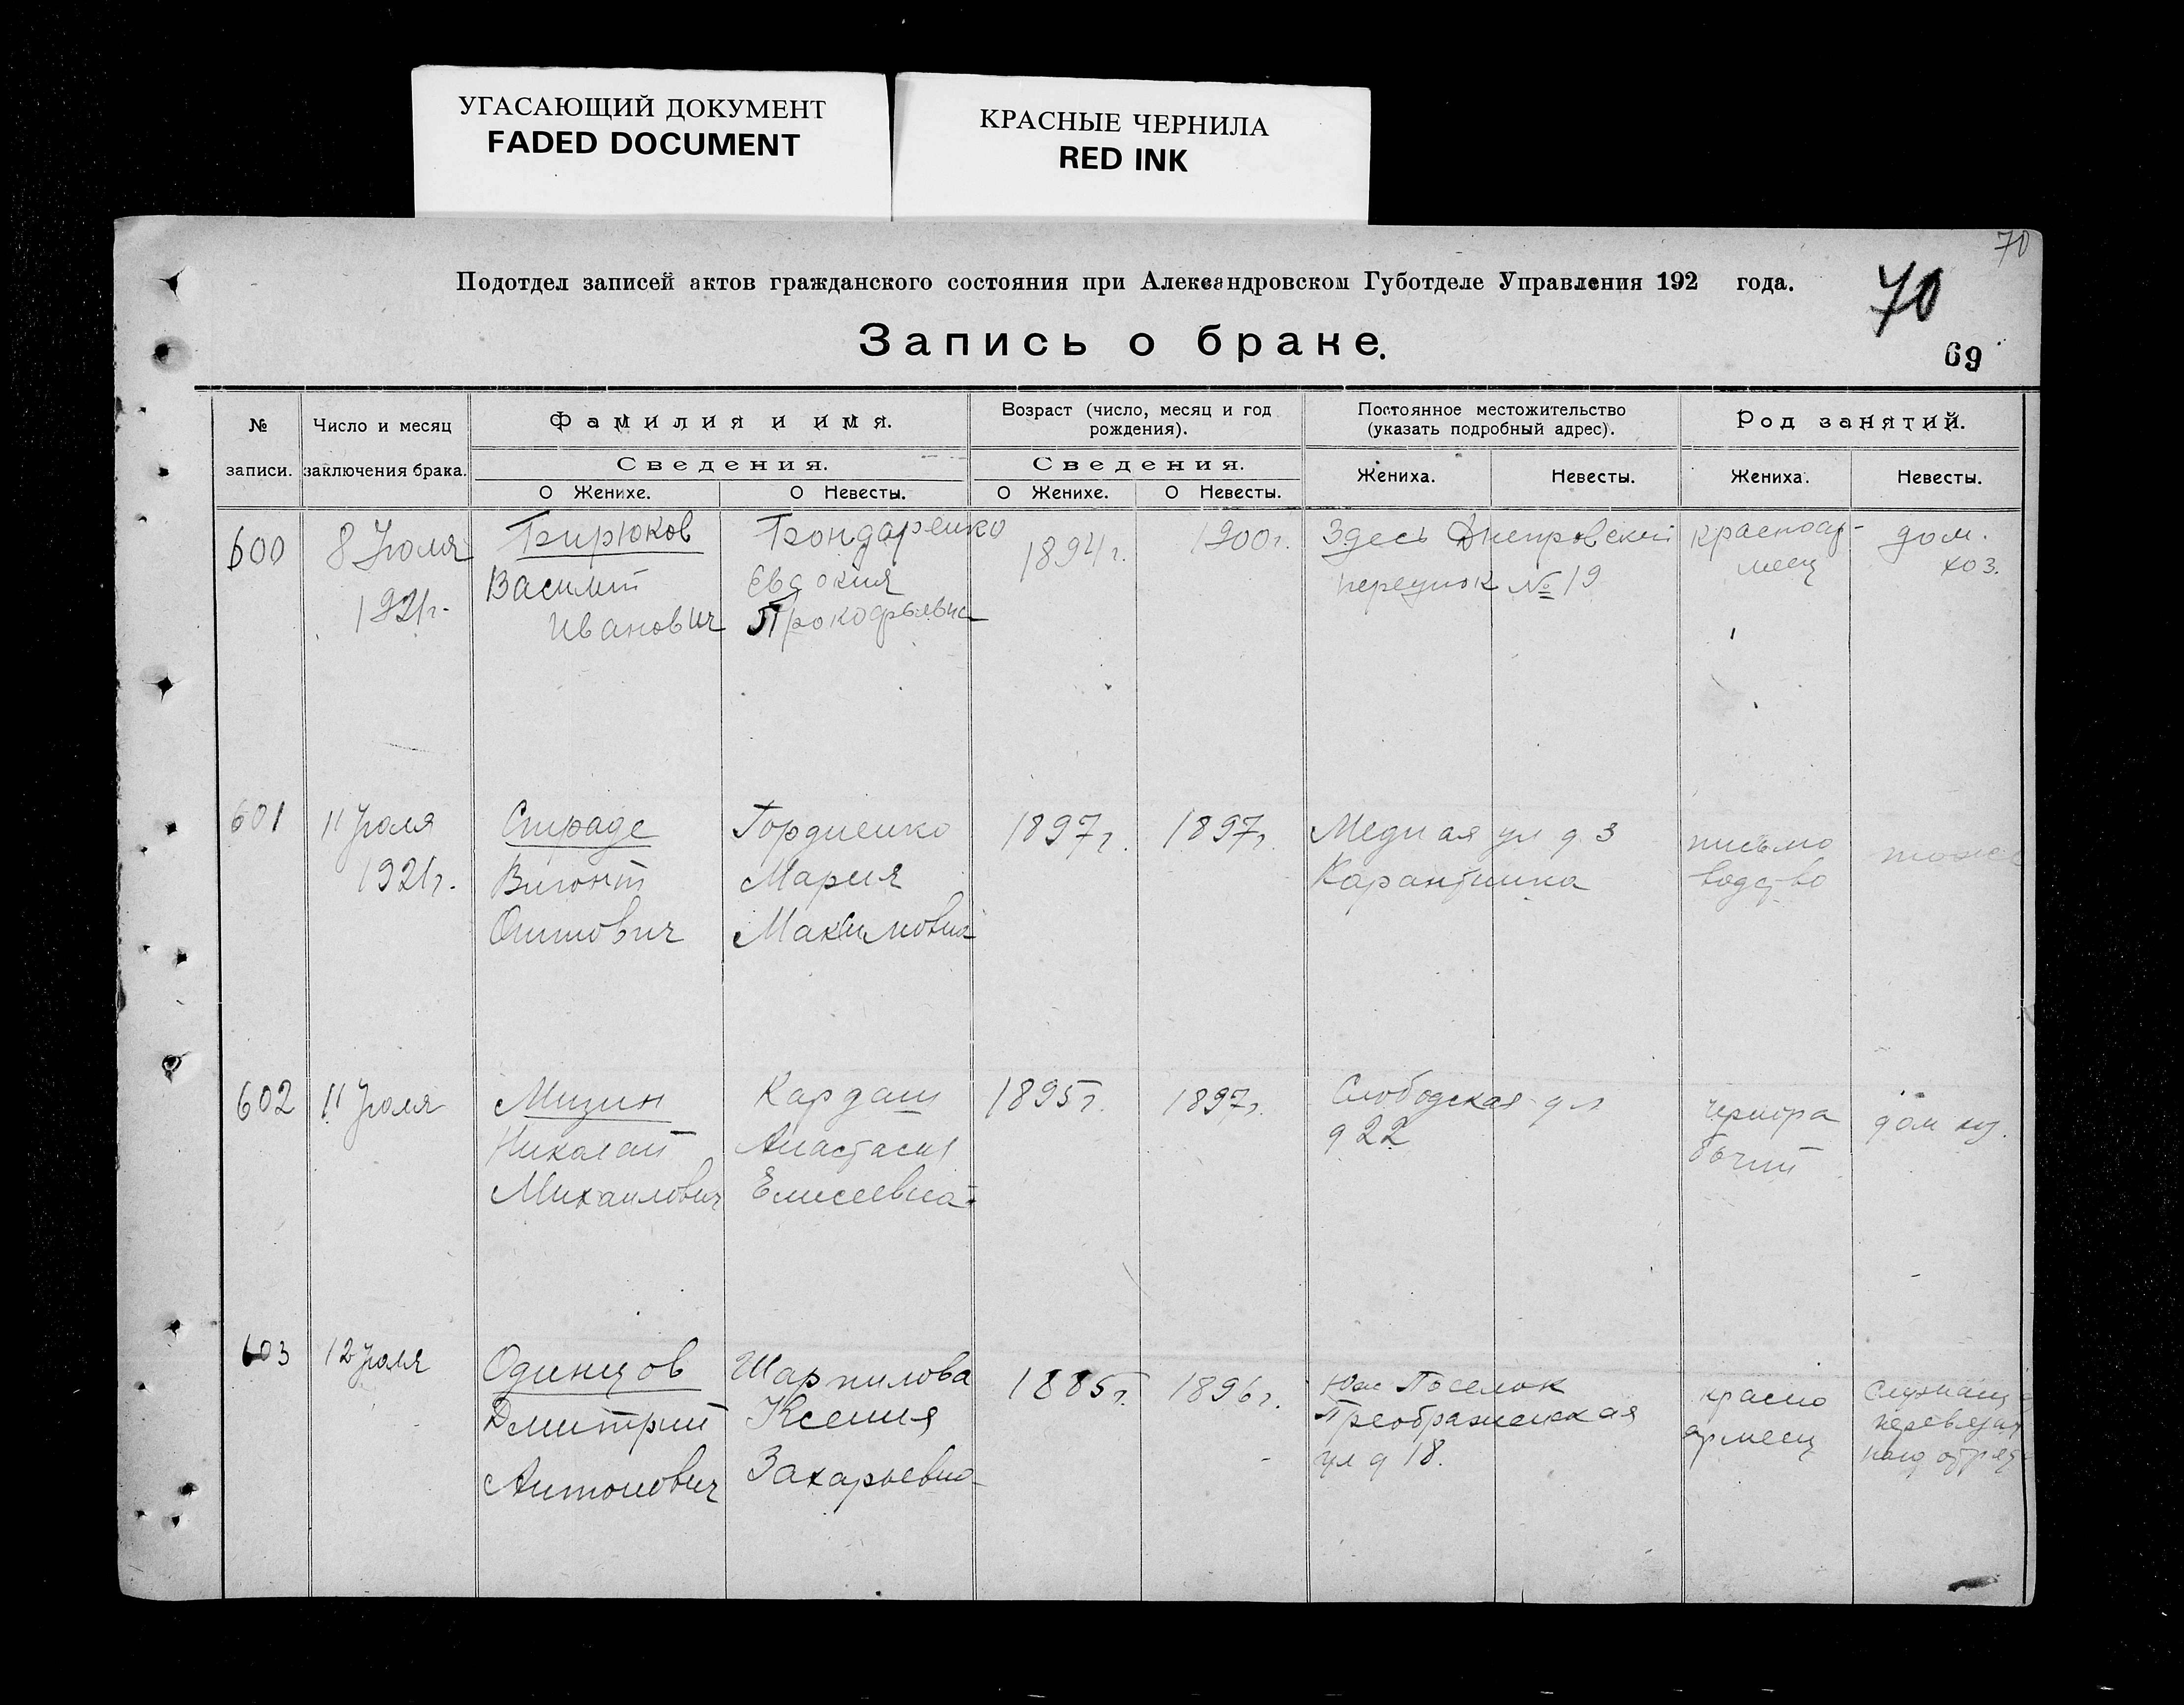 УГАСАЮЩИЙ ДОКУМЕНТ
FADED DOCUMENT
КРАСНЫЕ ЧЕРНИЛА
RED INK
70
Подотдел записей актов гражданского состояния при Александровском Губотделе Управления 192 года.
70
Запись о браке.
69
№ записи.
Число и месяц заключения брака.
Фамилия и имя.
Сведения.
О Женихе.
О Невесты.
Возраст (число, месяц и год рождения).
Сведения.
О Женихе.
О Невесты.
Постоянное местожительство (указать подробный адрес).
Жениха.
Невесты.
Род занятий.
Жениха.
Невесты.
600
8 Июля
1921г.
Бирюков
Василий
Иванович
Бондаренко
Евдокия
Прокофьевна
1894г.
1900г.
Здесь Днепровский
переулок № 19
красноар-
меец
дом.
хоз.
601
11 Июля
1921г.
Страде
Оттович
Гордиенко
Мария
Максимовна
1897г.
1897г.
Медная ул д 3
Карантинка
письмо
водство
тоже
602
11 Июля
Мизин
Николай
Михаилович
Кардаш
Анастасия
Елисеевна
1895г.
1897г.
Слободская ул
д 22
чернора
бочий
дом хоз.
603
12 Июля
Одинцов
Дмитрий
Антонович
Шарпилова
Ксения
Захарьевна
1885г.
1896г.
Юж Поселок
Преображенская
ул д 18.
красно
армеец